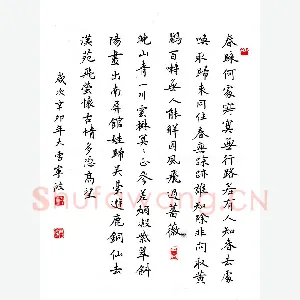 春歸何處寂寞無行路若有人知春去處
喚取歸来同住春無踪跡誰知除非问取黄
鹂百啭無人能解因風飛過薔薇
晚山青一川雲樹冥冥正参差烟凝紫翠斜
陽畫出南屏館娃歸吴臺遊鹿銅仙去
漢苑飛螢懷古情多憑高望
歲次辛卯年大雪寧波
Shufawang.CN